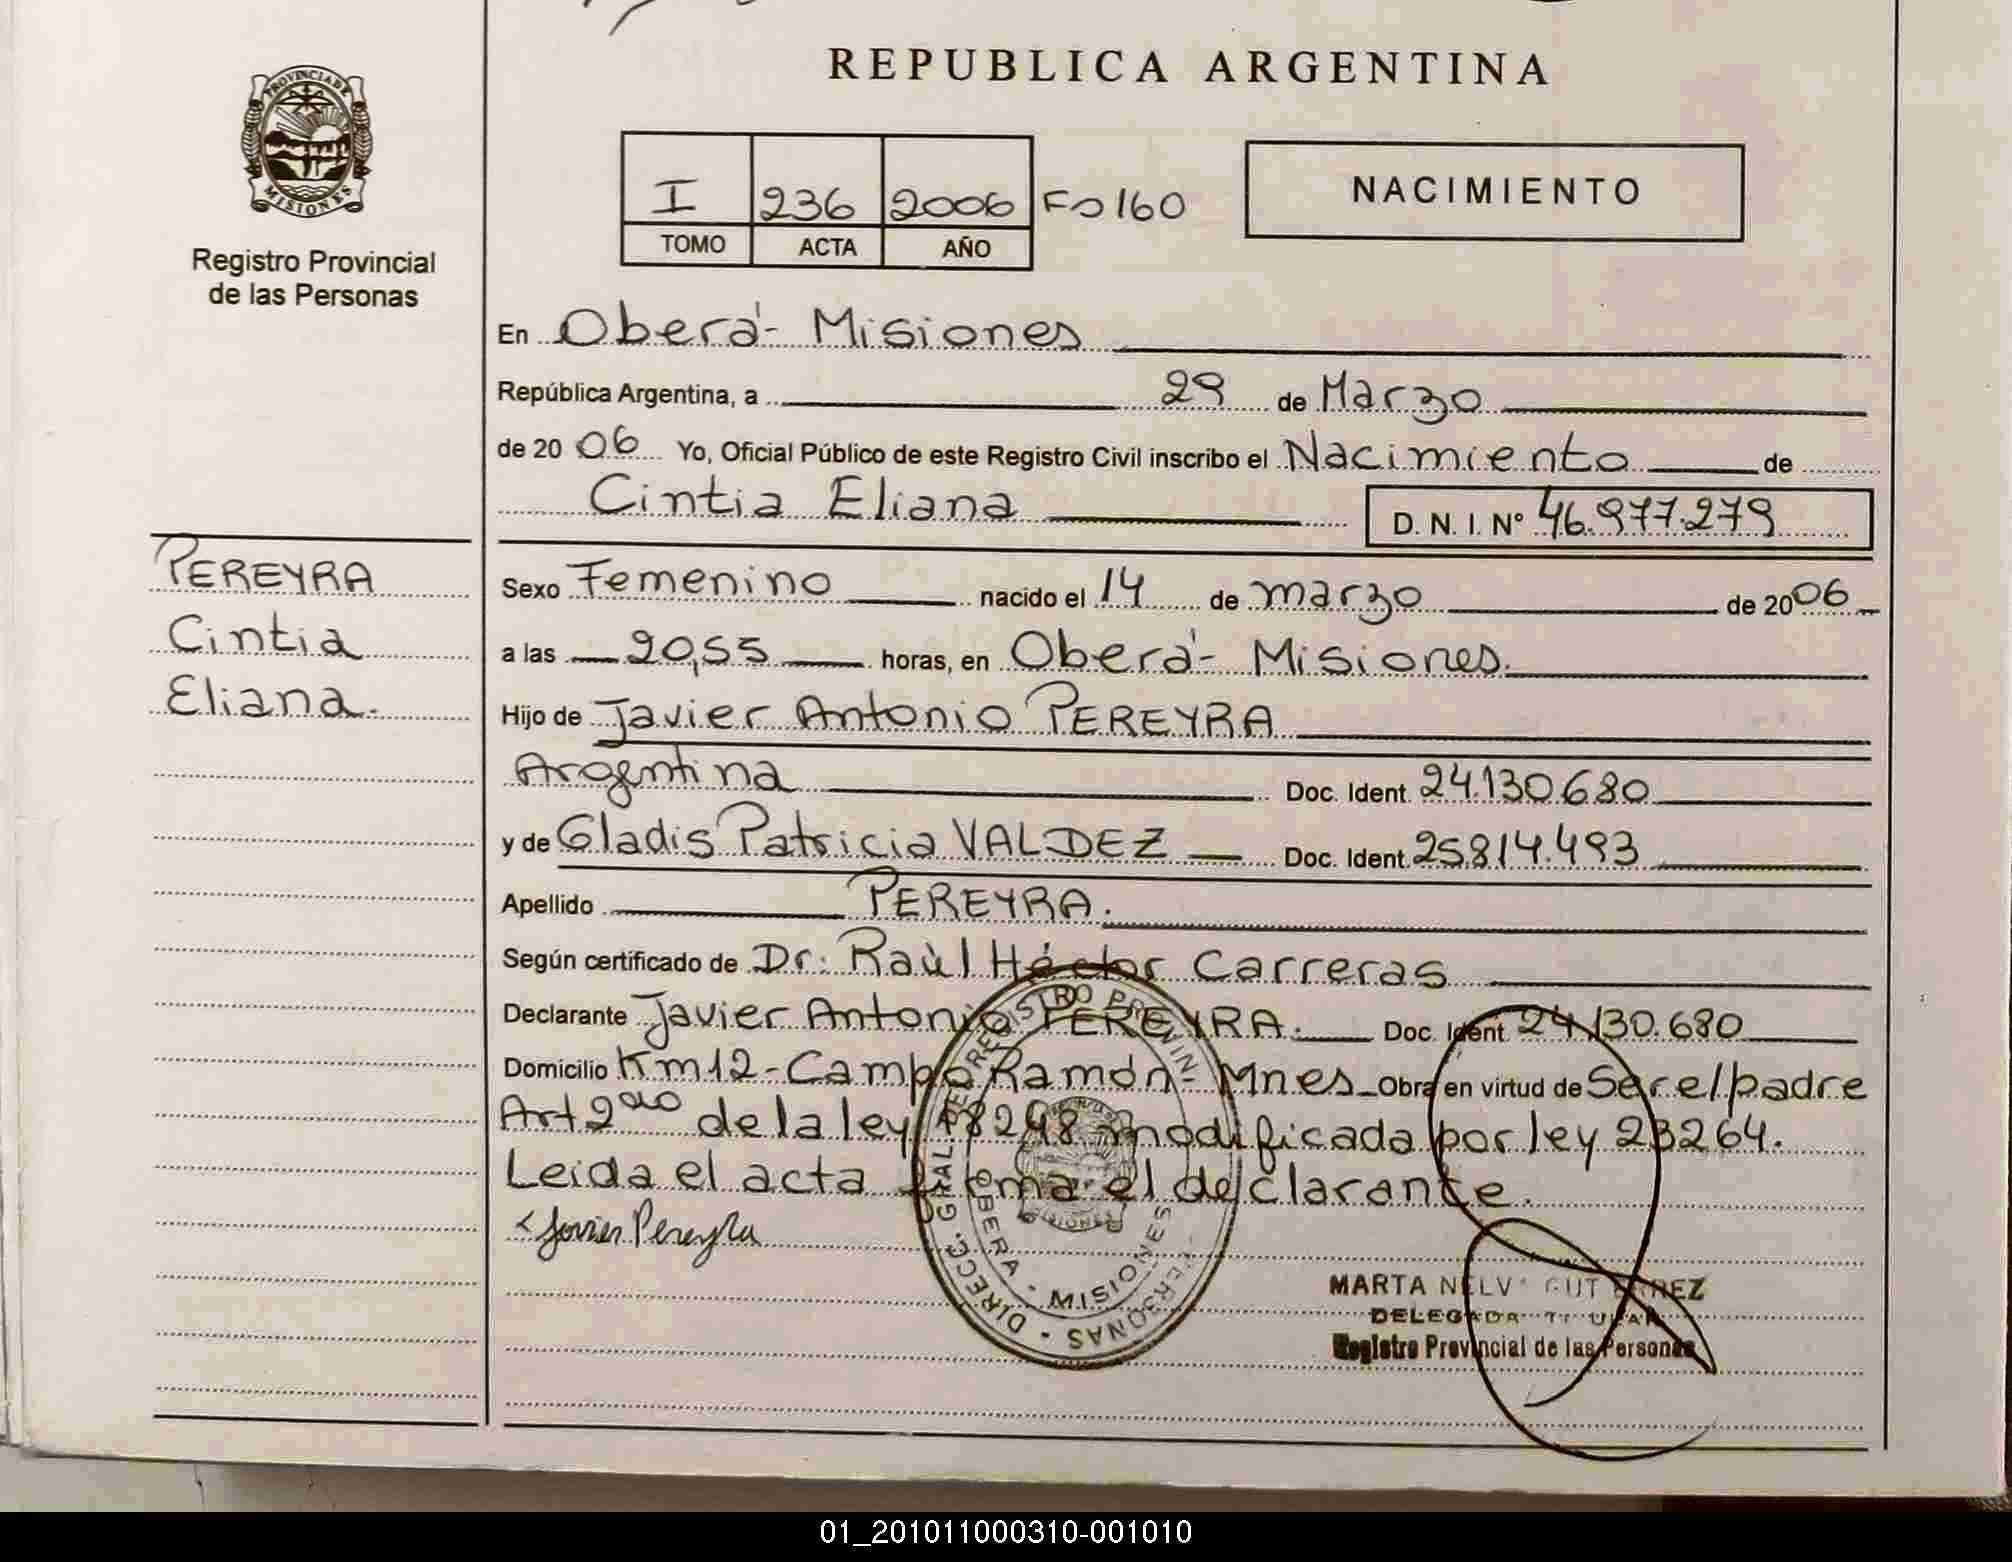 REPUBLICA ARGENTINA
PROVINCIA DE
MISIONES
Registro Provincial
de las Personas
I 236 2006 Fo 160
TOMO ACTA AÑO
NACIMIENTO
En Oberá - Misiones
República Argentina, a 29 de Marzo
de 2006 Yo, Oficial Público de este Registro Civil inscribo el Nacimiento de
Cintia Eliana D. N. I. Nº 46.977.279
PEREYRA
Cintia
Eliana.
Sexo Femenino nacido el 14 de marzo de 2006
a las 20,55 horas, en Oberá - Misiones.
Hijo de Javier Antonio PEREYRA
Argentina Doc. Ident. 24.130.680
y de Gladis Patricia VALDEZ Doc. Ident. 25.814.493
Apellido PEREYRA.
Según certificado de Dr. Raùl Héctor Carreras
Declarante Javier Antonio PEREYRA. Doc. Ident. 24.130.680
Domicilio Km 12 - Campo Ramón - Mnes - Obra en virtud de Ser el padre
Art 2do de la ley 18248 modificada por ley 23264.
Leida el acta firma el declarante.
Javier Pereyra
DIRECC. GRAL. DE REGISTRO PROVIN PERSONAS
OBERA - MISIONES
MISIONES
MARTA
DELEGADA TITULAR
Registro Provincial de las Personas
01_201011000310-001010